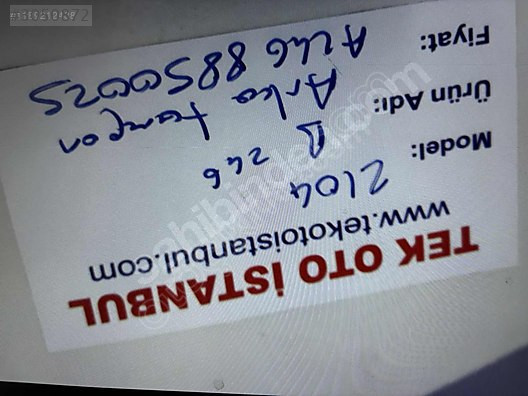 TEK OTO İSTANBUL
www.tekotoistanbul.com
2104
Model: B 246
Ürün Adı: Arka tampon
Fiyat: A 246 885 00 25
sahibinden.com